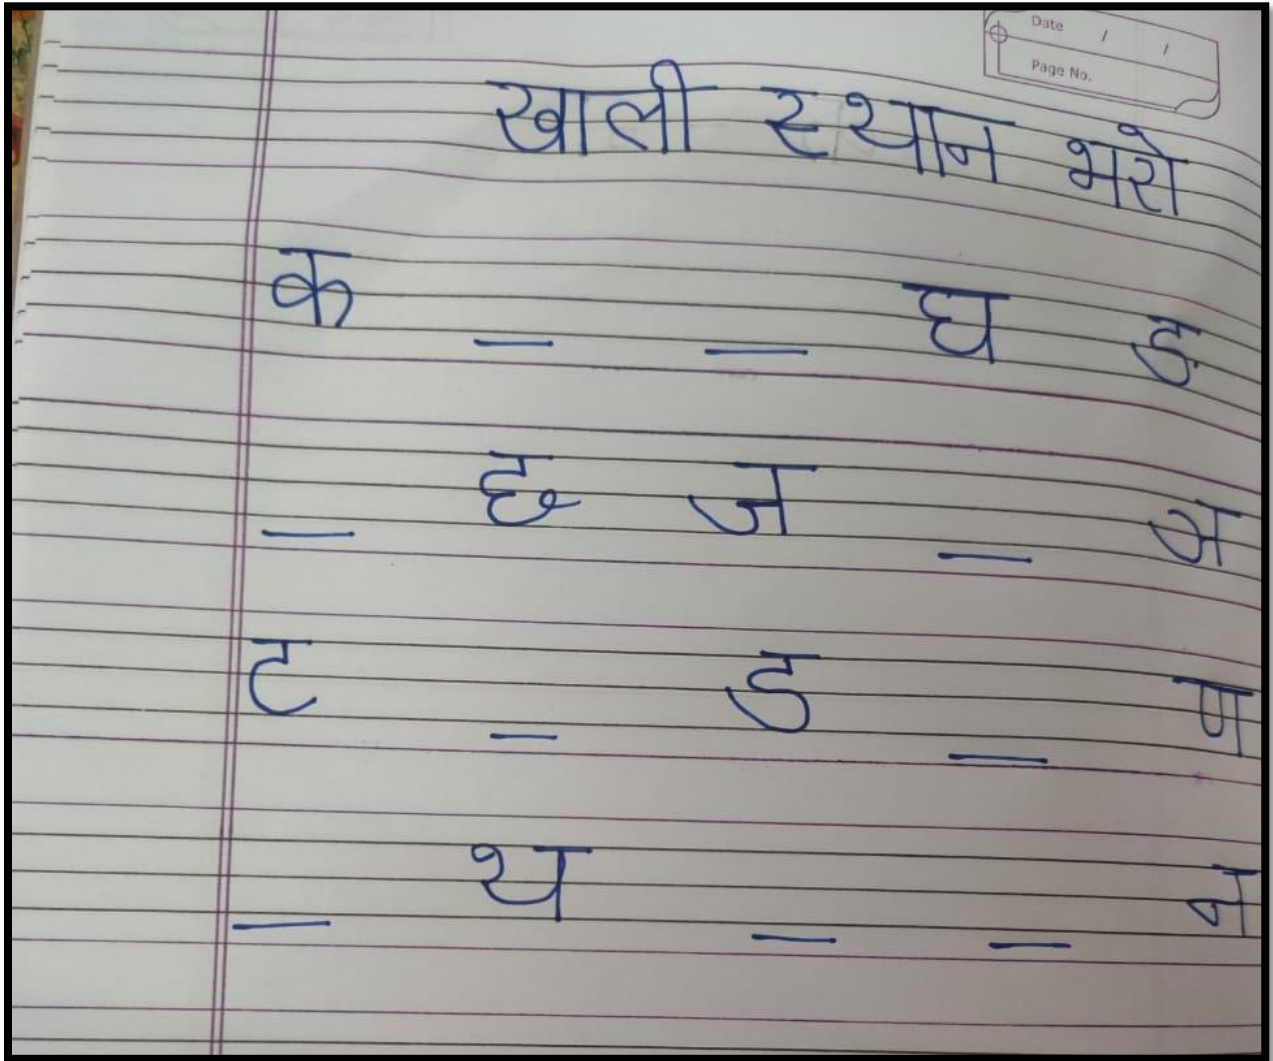 Date / /
Page No.
खाली स्थान भरो
क _ _ घ ङ
_ छ ज _ ञ
ट _ ड _ ण
_ थ _ _ न